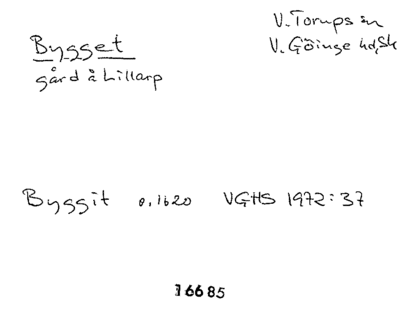 Bygget
gård å Lillarp
V. Torups sn
V. Göinge hd, Sk
Byggit o. 1620 VGHS 1972:37
16685